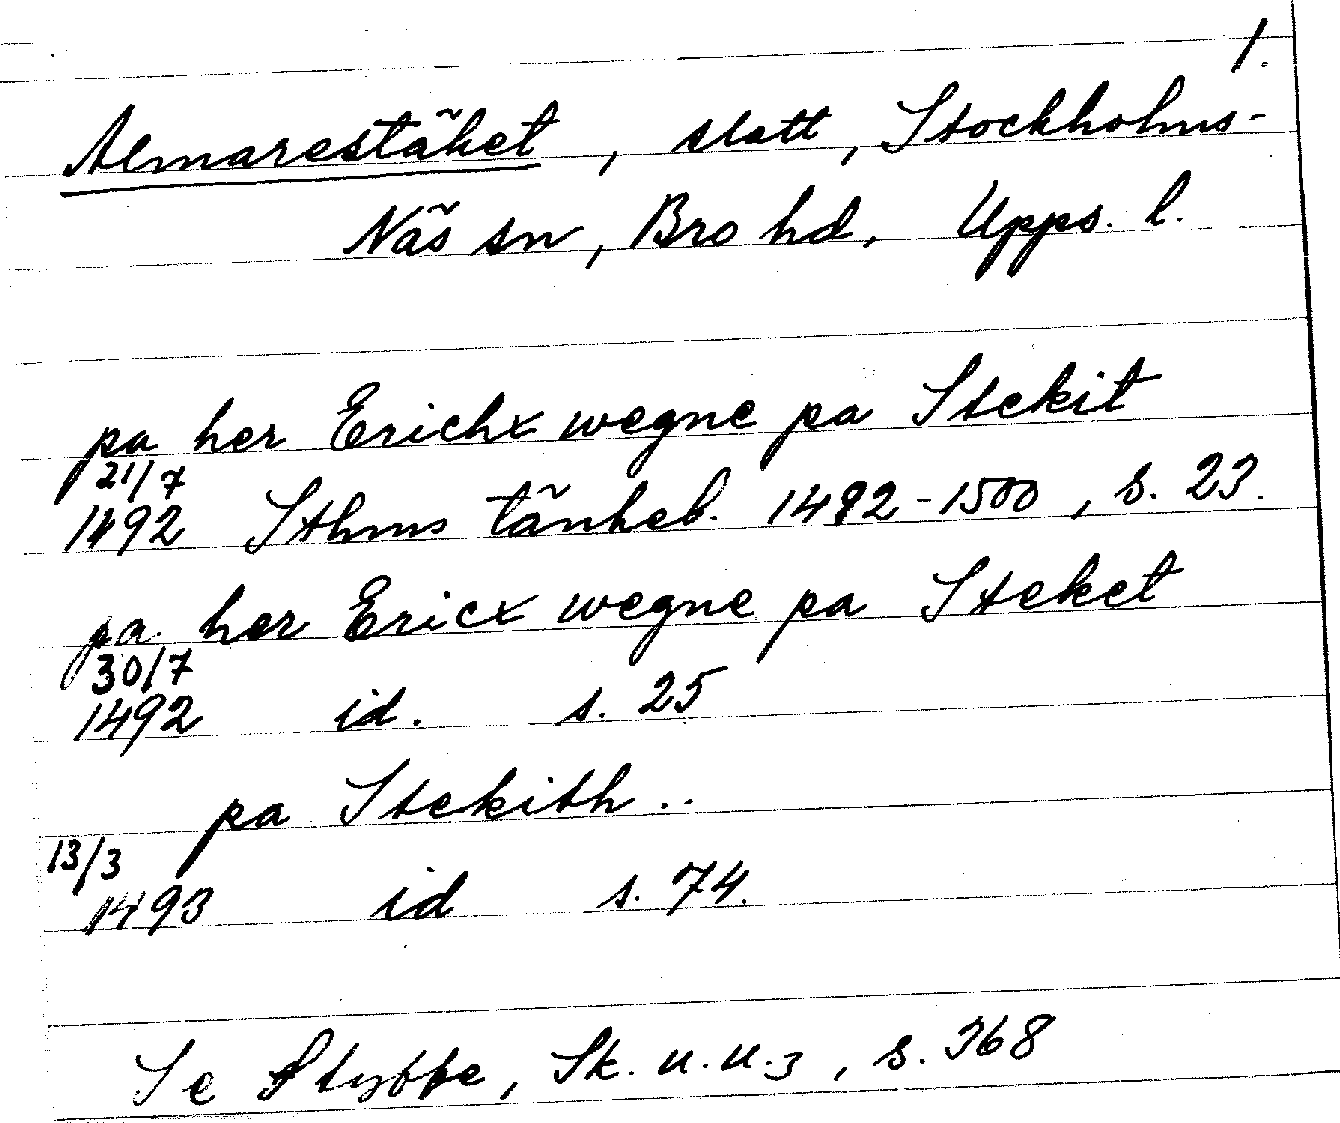 1.
Almarestäket, slott, Stockholms-
Näs sn, Bro hd, Upps. l.
pa her Erichx wegne pa Stekit
21/7
1492 Sthms tänkeb. 1492-1500, s. 23.
pa her Ericx wegne pa Steket
30/7
1492 id. s. 25
pa Stekith..
13/3
1493 id s. 74.
Se Styffe, Sk. u. u. 3, s. 368